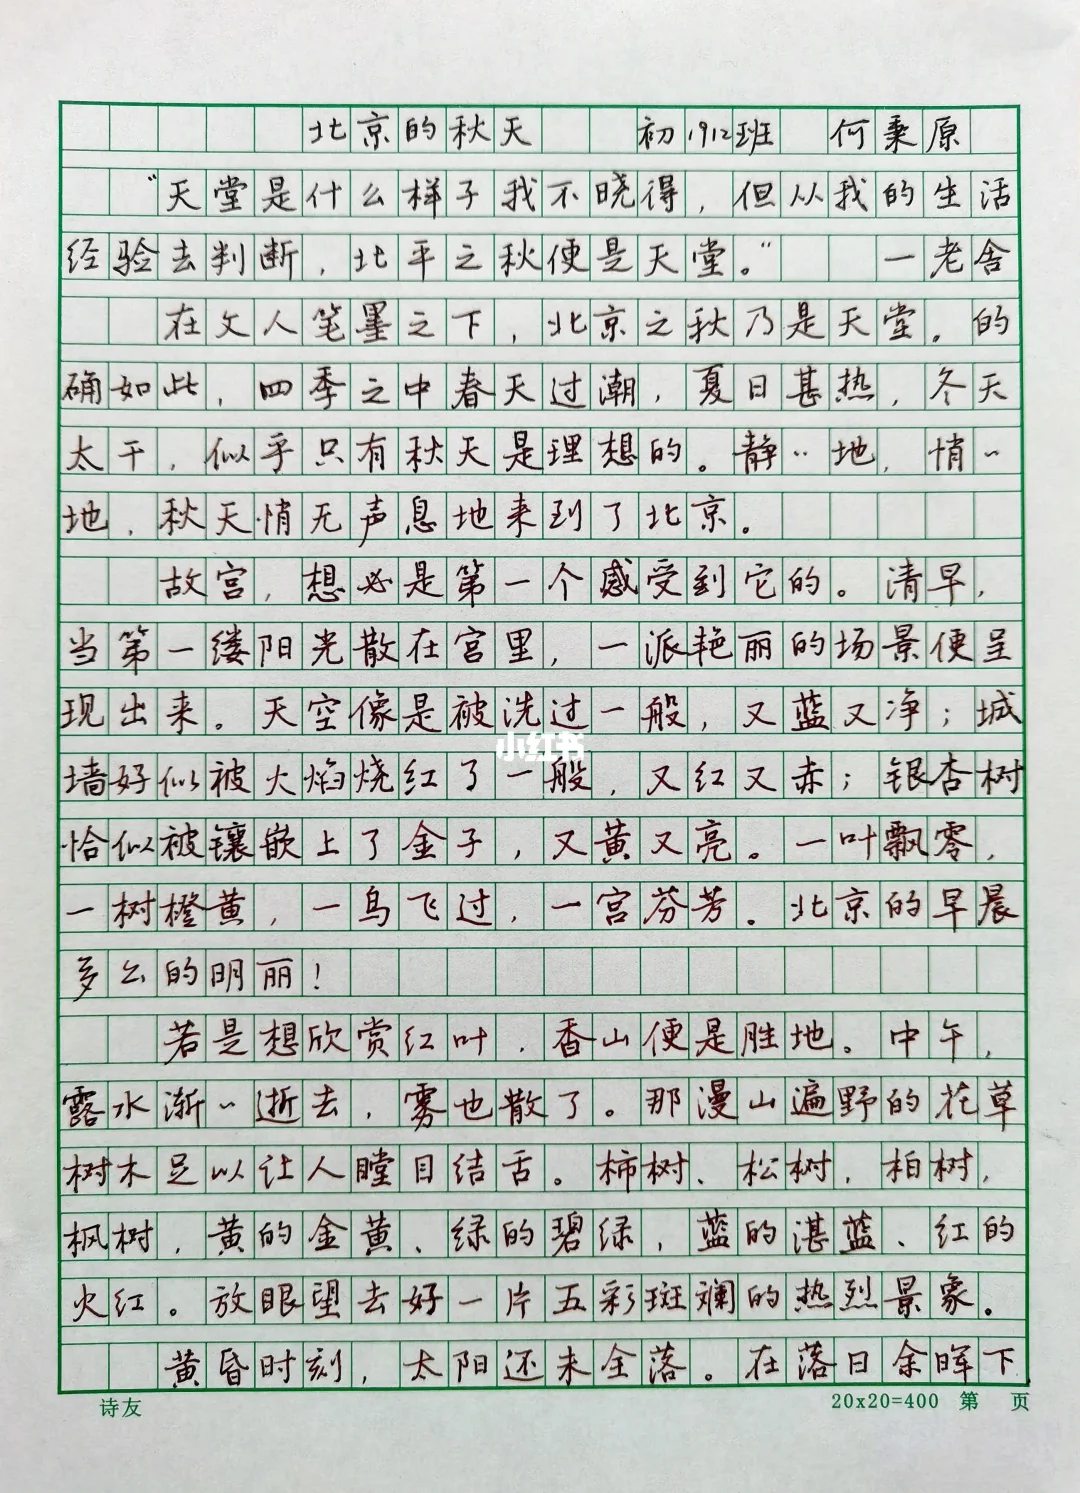 北京的秋天 初1912班 何秉原
“天堂是什么样子我不晓得，但从我的生活
经验去判断，北平之秋便是天堂。” 一老舍
在文人笔墨之下，北京之秋乃是天堂。的
确如此，四季之中春天过潮，夏日甚热，冬天
太干，似乎只有秋天是理想的。静〃地，悄〃
地，秋天悄无声息地来到了北京。
故宫，想必是第一个感受到它的。清早，
当第一缕阳光散在宫里，一派艳丽的场景便呈
现出来。天空像是被洗过一般，又蓝又净；城
墙好似被火焰烧红了一般，又红又赤；银杏树
恰似被镶嵌上了金子，又黄又亮。一叶飘零，
一树橙黄，一鸟飞过，一宫芬芳。北京的早晨
多么的明丽！
若是想欣赏红叶，香山便是胜地。中午，
露水渐〃逝去，雾也散了。那漫山遍野的花草
树木足以让人瞠目结舌。柿树、松树，柏树，
枫树，黄的金黄、绿的碧绿，蓝的湛蓝、红的
火红。放眼望去好一片五彩斑斓的热烈景象。
黄昏时刻，太阳还未全落。在落日余晖下
小红书
诗友 20x20=400 第 页